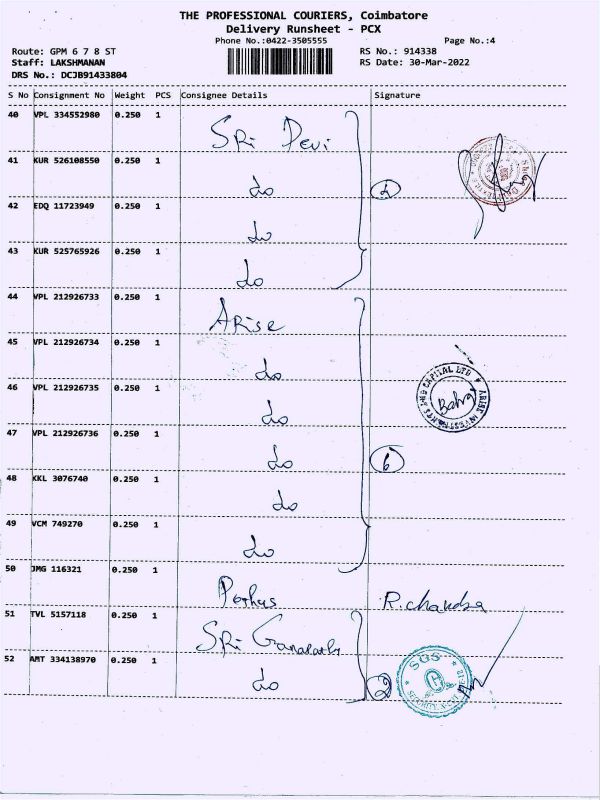 THE PROFESSIONAL COURIERS, Coimbatore
Delivery Runsheet - PCX
Phone No.:0422-3505555 Page No.:4
Route: GPM 6 7 8 ST RS No.: 914338
Staff: LAKSHMANAN RS Date: 30-Mar-2022
DRS No.: DCJB91433804
S No Consignment No Weight PCS Consignee Details Signature
40 VPL 334552980 0.250 1 Sri Devi
41 KUR 526108550 0.250 1 do 4
42 EDQ 11723949 0.250 1 do
43 KUR 525765926 0.250 1 do
44 VPL 212926733 0.250 1 Arise
45 VPL 212926734 0.250 1 do
46 VPL 212926735 0.250 1 do
CAPITAL LTD ARISE INVESTMENTS
47 VPL 212926736 0.250 1 do 6
48 KKL 3076740 0.250 1 do
49 VCM 749270 0.250 1 do
50 JMG 116321 0.250 1 R.chandra
51 TVL 5157118 0.250 1 Sri
52 AMT 334138970 0.250 1 do 2
SGS